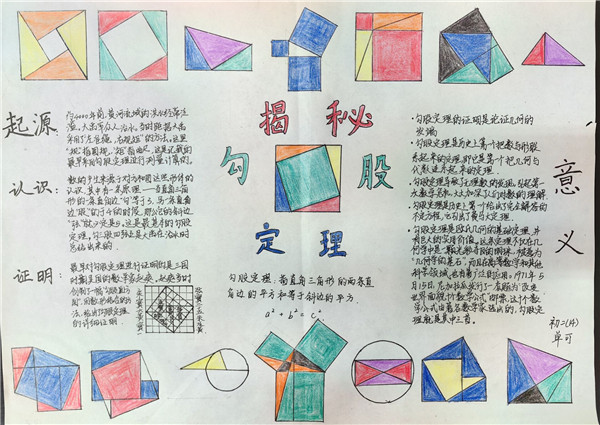 揭秘
勾股
定理
起源
约4000年前,黄河流域的洪水经常泛
滥,大禹率众人治水。当时跑据大禹
"左准绳,右规矩"的方法,这里
"规"指圆规,"矩"指曲尺,这是记载的
最早利用勾股定理进行测量计算的。
认识:
角形的一条直角边"勾"等于3,另一条直角
边"股"等于4的时候,那么它的斜边
"弦"就必定是5,这是最基本的勾股
定理,勾三股四弦五是大禹在治水时
总结出来的。
证明:
最早对勾股定理进行证明的是三国
时期吴国的数学家赵爽。赵爽当时
创制了一幅"勾股圆方
图",用数形结合的方
法,给出勾股定理
的详细证明
勾股定理:指直角三角形的两条直
角边的平方和等于斜边的平方.
a² + b² = c²
意义
·勾股定理的证明是论证几何的
发端
·勾股定理是历史上第一个把数与形联
系起来的定理,即它是第一个把几何与
代数联系起来的定理.
·勾股定理导致了无理数的发现,引起第一
次数学危机,大大加深了人们对数的理解.
·勾股定理是历史上第一个给出完全解答的
不定方程,它引出了费马大定理.
·勾股定理是欧氏几何的基础定理,并
有巨大的实用价值.这条定理不仅在几
何学中是一颗光彩夺目的明珠,被誉为
"几何学的基石",而且在高等数学和其他
科学领域也有着广泛的应用.1971年5
月15日,尼加拉瓜发行了一套题为"改变
世界面貌的十个数学公式"邮票,这十个数
学公式由著名数学家选出的,勾股定
理就是其中之首.
初二(14)
单可